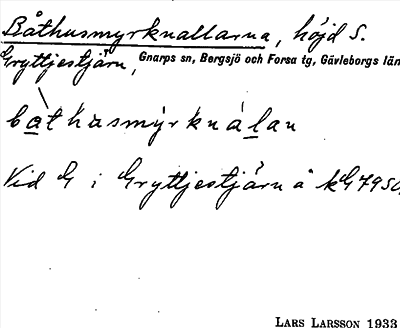 Båthusmyrknallarna, höjd S.
Gryttjestjärn, Gnarps sn, Bergsjö och Forsa tg, Gävleborgs län
båthusmýrknálan
Vid G i Gryttjestjärn å kG 7950.
LARS LARSSON 1933